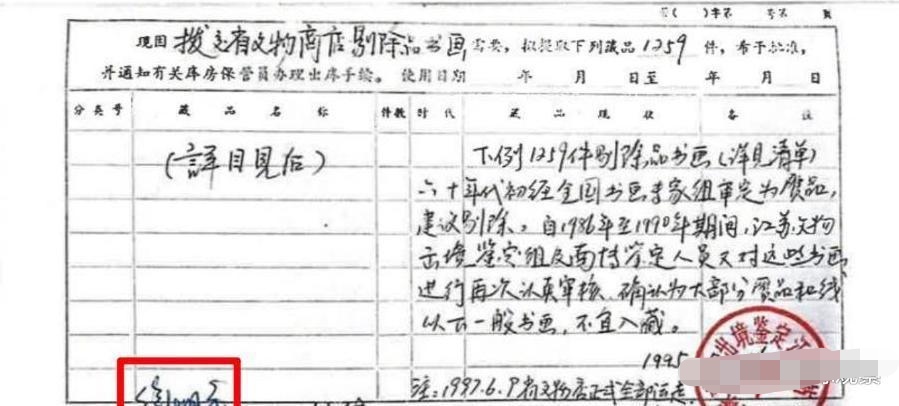 字第 号第 页
现因 拨交省文物商店剔除品书画 需要，拟提取下列藏品1259件，希予批准，
并通知有关库房保管员办理出库手续。使用日期 年 月 日至 年 月 日
分类号 藏品名称 件数 时代 藏品现状 备注
（详目见后）
下例1259件剔除品书画（详见清单）
六十年代初经全国书画专家组审定为赝品，
建议剔除。自1986年至1990年期间，江苏文物
出境鉴定组及南博鉴定人员又对这些书画
进行再次认真审核，确认为大部分赝品和线
以下一般书画，不宜入藏。
1995
出境鉴定
注：1997.6.9省文物店正式全部运走
观察